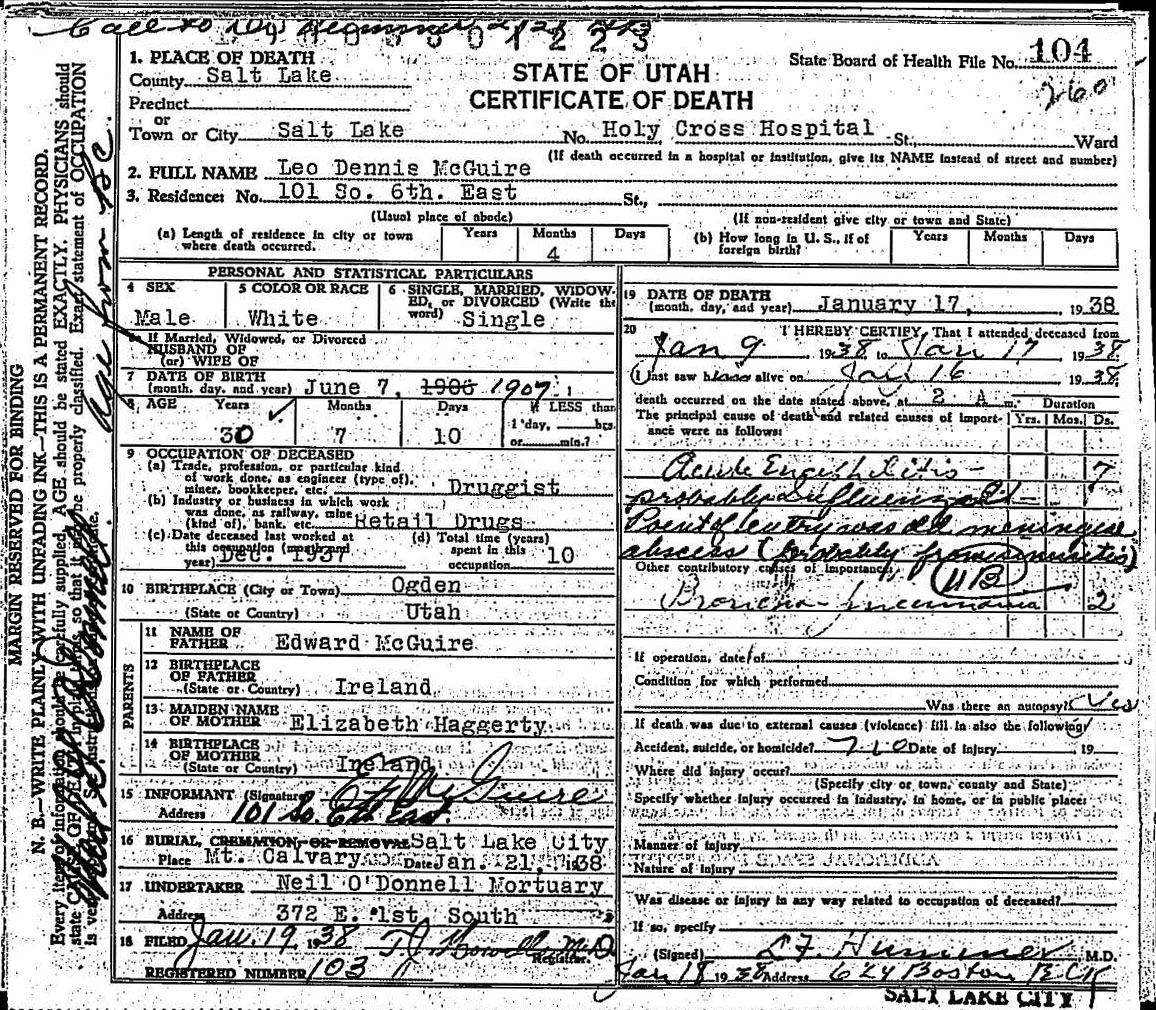 Call to Dr Hummer
1. PLACE OF DEATH
County Salt Lake
Precinct
or
Town or City Salt Lake No. Holy Cross Hospital St., Ward
(If death occurred in a hospital or institution, give its NAME instead of street and number)
STATE OF UTAH
CERTIFICATE OF DEATH
State Board of Health File No. 104
260
2. FULL NAME Leo Dennis McGuire
3. Residence: No. 101 So. 6th. East St.,
(Usual place of abode) (If non-resident give city or town and State)
(a) Length of residence in city or town where death occurred. Years Months 4 Days
(b) How long in U. S., if of foreign birth? Years Months Days
MARGIN RESERVED FOR BINDING
N. B.—WRITE PLAINLY WITH UNFADING INK—THIS IS A PERMANENT RECORD.
Every item of information should be carefully supplied. AGE should be stated EXACTLY. PHYSICIANS should
state CAUSE OF DEATH in plain terms, so that it may be properly classified. Exact statement of OCCUPATION
is very important. See instructions on back of certificate.
PERSONAL AND STATISTICAL PARTICULARS
4 SEX Male
5 COLOR OR RACE White
6 SINGLE, MARRIED, WIDOWED, or DIVORCED (Write the word) Single
If Married, Widowed, or Divorced
HUSBAND OF
(or) WIFE OF
7 DATE OF BIRTH
(month, day, and year) June 7, 1906 1907
8 AGE Years 30 Months 7 Days 10 If LESS than 1 day, hrs. or min.?
9 OCCUPATION OF DECEASED
(a) Trade, profession, or particular kind
of work done, as engineer (type of),
miner, bookkeeper, etc. Druggist
(b) Industry or business in which work
was done, as railway, mine
(kind of), bank, etc. Retail Drugs
(c) Date deceased last worked at
this occupation (month and
year) Dec. 1937
(d) Total time (years)
spent in this
occupation 10
10 BIRTHPLACE (City or Town) Ogden
(State or Country) Utah
PARENTS
11 NAME OF
FATHER Edward McGuire
12 BIRTHPLACE
OF FATHER
(State or Country) Ireland
13 MAIDEN NAME
OF MOTHER Elizabeth Haggerty
14 BIRTHPLACE
OF MOTHER
(State or Country) Ireland
15 INFORMANT (Signature) McGuire
Address 101 So. 6th East.
16 BURIAL, CREMATION, OR REMOVAL Salt Lake City
Place Mt. Calvary Date Jan. 21, 1938
17 UNDERTAKER Neil O'Donnell Mortuary
Address 372 E. 1st. South
18 FILED Jan. 19 1938 M.D.
Registrar.
REGISTERED NUMBER 103
19 DATE OF DEATH
(month, day, and year) January 17, 1938
20 I HEREBY CERTIFY, That I attended deceased from
Jan 9 1938 to Jan 17 1938
I last saw him alive on Jan 16 1938
death occurred on the date stated above, at 2 A m. Duration
The principal cause of death and related causes of importance were as follows: Yrs. Mos. Ds.
Acute Encephilitis - 7
probably Influenzal -
Point of entry was old meningeal
abscess (probably from sinusitis)
Other contributory causes of importance
11B
Broncho-pneumonia 2
If operation, date of
Condition for which performed
Was there an autopsy? Yes
If death was due to external causes (violence) fill in also the following:
Accident, suicide, or homicide? no Date of injury 19
Where did injury occur?
(Specify city or town, county and State)
Specify whether injury occurred in industry, in home, or in public place:
Manner of injury
Nature of injury
Was disease or injury in any way related to occupation of deceased?
If so, specify
(Signed) L F. Hummer M.D.
Jan 18 1938 Address 624 Boston
SALT LAKE CITY